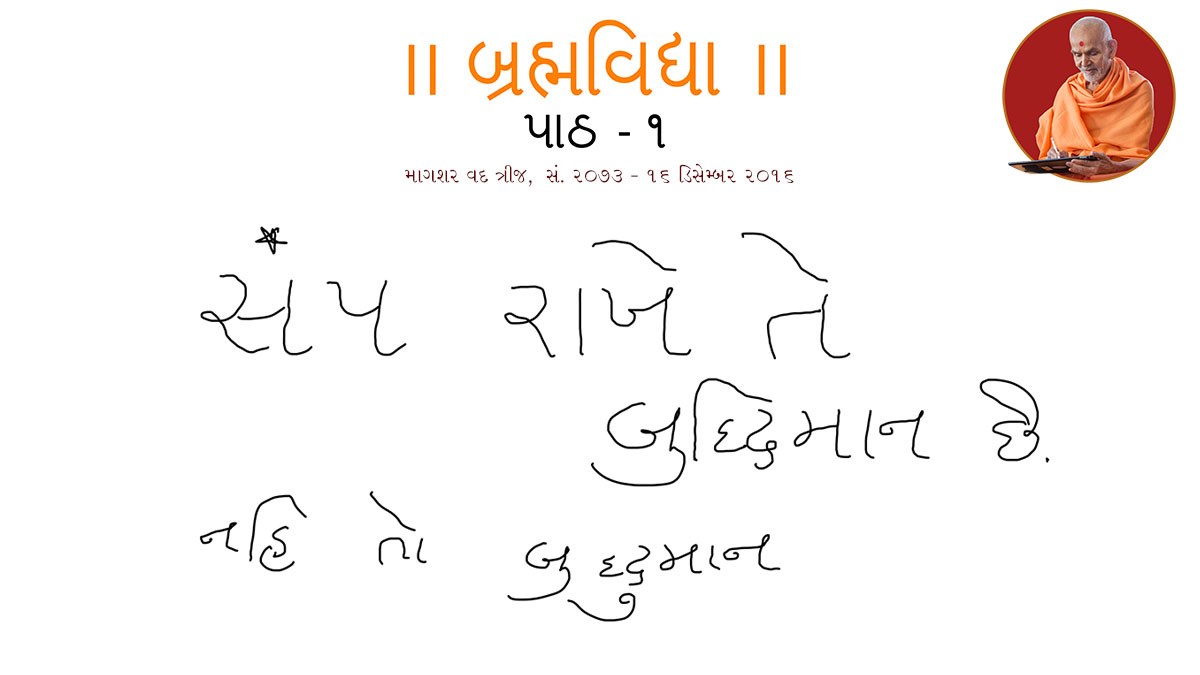 ॥ બ્રહ્મવિદ્યા ॥
પાઠ - ૧
માગશર વદ ત્રીજ, સં. ૨૦૭૩ - ૧૬ ડિસેમ્બર ૨૦૧૬
સંપ રાખે તે
બુદ્ધિમાન છે.
નહિ તો બુદ્ધુમાન